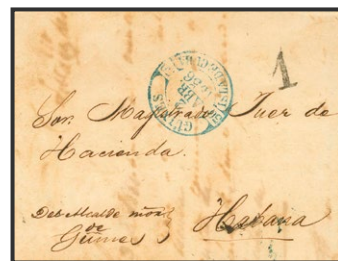 1
GUINES
ABR
Sor. Magistrado Juez de
Hacienda.
Del Alcalde mor
de
Guines
Habana